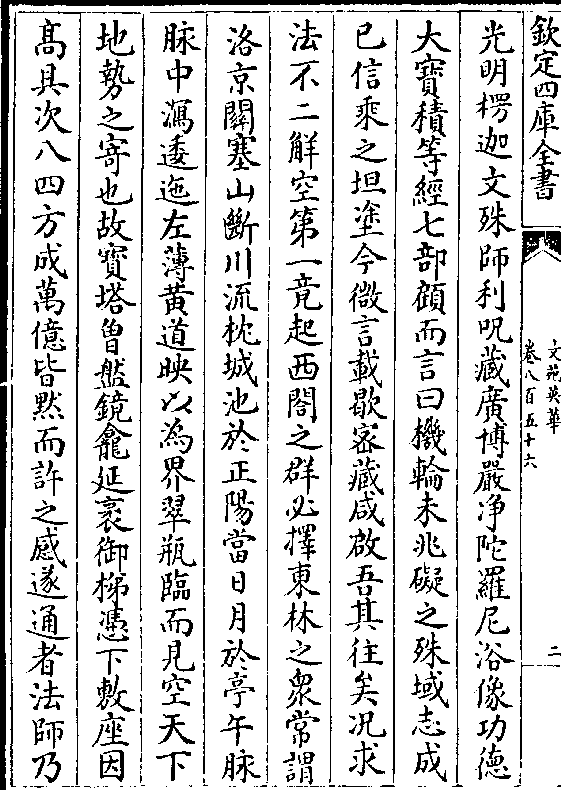 欽定四庫全書
文苑英華
卷八百五十六
二
光明楞迦文殊師利呪藏廣博嚴净陀羅尼浴像功德
大寶積等經七部顧而言曰機輪未兆礙之殊域志成
已信乘之坦塗今微言載歇宻藏咸啟吾其往矣况求
法不二解空第一竟起西閤之群必擇東林之衆常謂
洛京闕塞山斷川流枕城池於正陽當日月於亭午脉
脉中瀉逶迤左薄黄道映以為界翠瓶臨而見空天下
地勢之竒也故寳塔曾盤鏡龕延袤御梯慿下敷座因
髙具次八四方成萬億皆黙而許之感遂通者法師乃